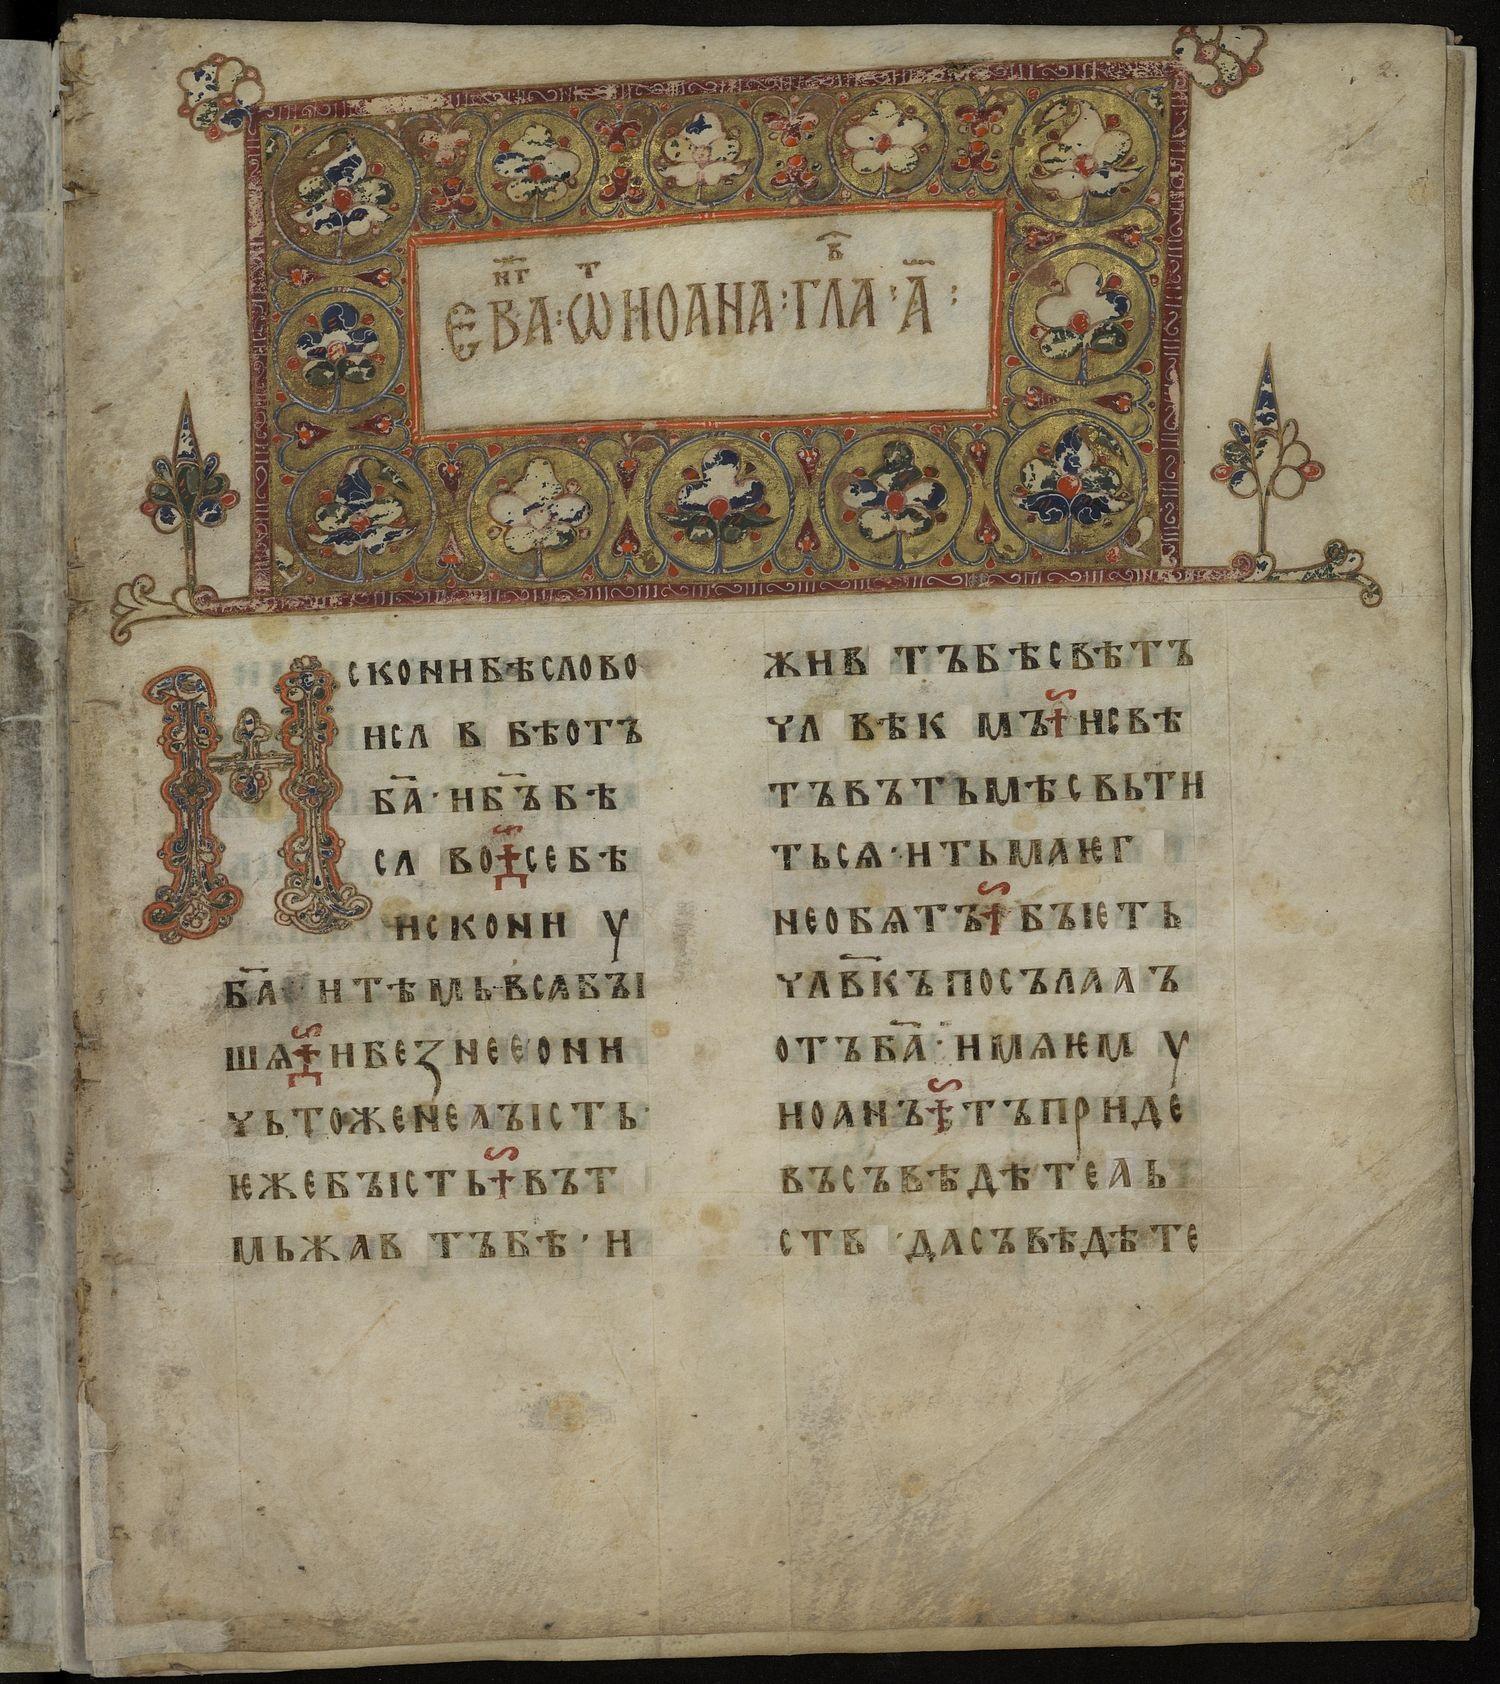 2.
ЕВА҃НГ : Ѿ ИОАНА : ГЛАВ҃ : А҃ :
ИСКОНИБѢСЛОВО
ИСЛ В БѢОТЪ
БА҃ · ИБЪ҃БѢ
СЛ ВО СЕБѢ
ИСКОНИ У
БА҃ ИТѢМЬВСѦБЪІ
ШѦ ИБЕЗНЕЕОНИ
ЧЬТОЖЕНЕЛЪІСТЬ ·
ѤЖЕБЪІСТЬ ВЪТ
МЬЖАВ ТЪБѢ · И
ЖИВ ТЪБѢСВѢТЪ
ЧЛ ВѢК МЪ ИСВѢ
ТЪВЪТЬМѢСВЬТИ
ТЬСѦ · ИТЬМАѤГ
НЕОБѦТЪ БЪІЕТЬ
ЧЛВ҃КЪПОСЪЛААЪ
ОТЪБА҃ : ИМѦѤМ У
ИОАНЪ ТЪПРИДЕ
ВЪСЪВѢДѢТЕЛЬ
СТВ · ДАСЪВѢДѢТЕ